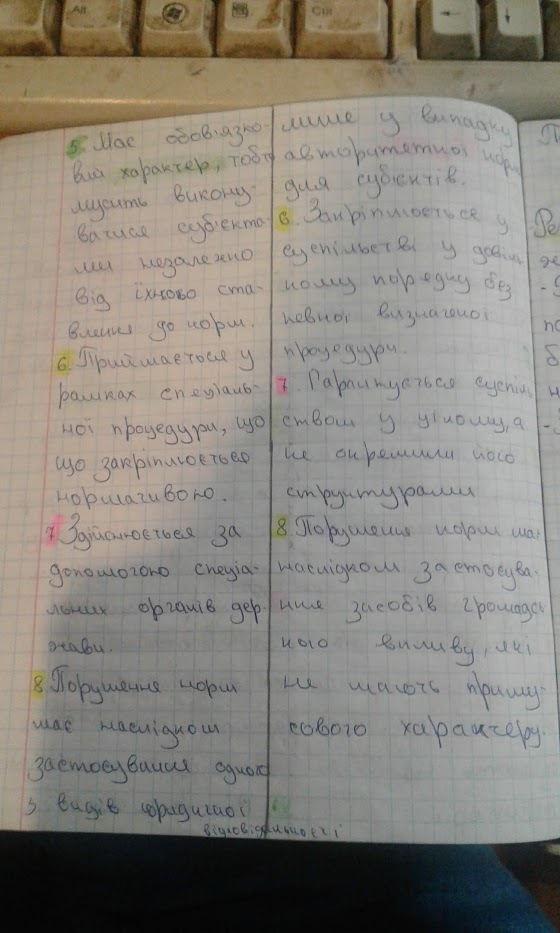 Alt
Ctrl
5. Має обов'язко-
вий характер, тобто
мусить викону-
ватися суб'єкта-
ми незалежно
від їхнього ста-
влення до норм.
6. Приймається у
рамках спеціаль-
ної процедури, що
що закріплюється
нормативоно.
7. Здійснюється за
допомогою спеціа-
льних органів дер-
жави.
8. Порушення норм
має наслідком
застосування одного
з видів юридичної
відповідальності
лише у випадку
авторитетної норм
для суб'єктів.
6. Закріплюється у
суспільстві у довіль
ному порядку без
певної визначеної
процедури.
7. Гарантується суспіль
ством у цілому, а
не окремими його
структурами
8. Порушення норм має
наслідком застосува-
ння засобів громадсь
кого впливу, які
не мають приму-
сового характеру.